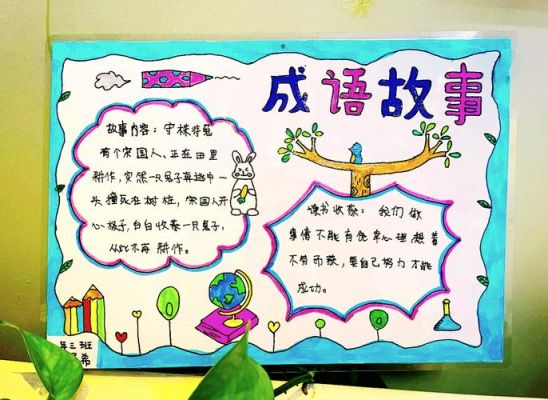 成语故事
故事内容：守株待兔
有个宋国人，正在田里
耕作，突然一只兔子奔跑中一
头撞死在树桩，宋国人开
心极了，白白收获一只兔子，
从此不再耕作。
读书收获：我们做
事情不能有侥幸心理想着
不劳而获，要自己努力才能
成功。
年三班
希